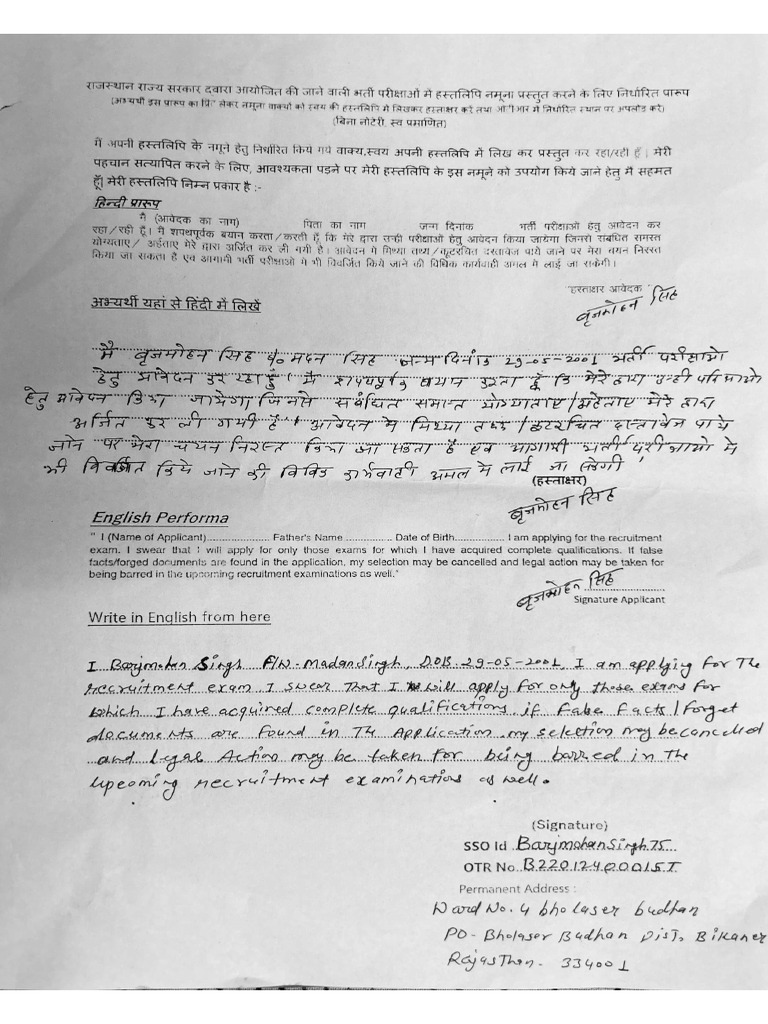 राजस्थान राज्य सरकार दवारा आयोजित की जाने वाली भर्ती परीक्षाओं में हस्तलिपि नमूना प्रस्तुत करने के लिए निर्धारित प्रारूप
(अभ्यर्थी इस प्रारूप का प्रिं लेकर नमूना वाक्यों को स्वयं की हस्तलिपि में लिखकर हस्ताक्षर करें तथा ओ आर में निर्धारित स्थान पर अपलोड करें)
(बिना नोटेरी, स्व प्रमाणित)
में अपनी हस्तलिपि के नमूने हेतु निर्धारित किये गये वाक्य,स्वय अपनी हस्तलिपि में लिख कर प्रस्तुत कर रहा/रही हूँ । मेरी
पहचान सत्यापित करने के लिए, आवश्यकता पड़ने पर मेरी हस्तलिपि के इस नमूने को उपयोग किये जाने हेतु मैं सहमत
हूँ। मेरी हस्तलिपि निम्न प्रकार है :-
हिन्दी प्रारूप
मैं (आवेदक का नाम) पिता का नाम जन्म दिनांक भर्ती परीक्षाओं हेतु आवेदन कर
रहा/रही हूँ। मैं शपथपूर्वक बयान करता/करती हूँ कि मेरे द्वारा उन्ही परीक्षाओं हेतु आवेदन किया जायेगा जिनसे संबंधित समस्त
योग्यताएं/ अर्हताएं मेरे द्वारा अर्जित कर ली गयी है। आवेदन में मिथ्या तथ्य/कूटरचित दस्तावेज पाये जाने पर मेरा चयन निरस्त
किया जा सकता है एवं आगामी भर्ती परीक्षाओं में भी विवर्जित किये जाने की विधिक कार्यवाही अमल में लाई जा सकेगी।
"हस्ताक्षर आवेदक "
बृजमोहन सिंह
अभ्यर्थी यहां से हिंदी में लिखें
मैं बृजमोहन सिंह मदन सिंह जन्म दिनांक 29-05-2001 भर्ती परीक्षाओ
हेतु आवेदन कर रहा हूँ। मैं शपथपूर्वक बयान करता हूँ कि मेरे द्वारा उन्ही परिक्षाओ
हेतु आवेदन किया जायेगा जिनसे संबंधित समस्त योग्यताए/अर्हताए मेरे द्वारा
अर्जित कर ली गयी है। आवेदन में मिथ्या तथ्य/कुटरचित दास्तावेज पाये
जाने पर मेरा चयन निरस्त किया जा सकता है एवं आगामी भर्ती परीक्षाओ में
भी विवर्जित किये जाने की विधिक कार्यवाही अमल में लाई जा सकेगी
(हस्ताक्षर)
बृजमोहन सिंह
English Performa
" I (Name of Applicant)..................... Father's Name ............... Date of Birth.............. I am applying for the recruitment
exam. I swear that I will apply for only those exams for which I have acquired complete qualifications. If false
facts/forged documents are found in the application, my selection may be cancelled and legal action may be taken for
being barred in the upcoming recruitment examinations as well."
बृजमोहन सिंह
Signature Applicant
Write in English from here
I Barjmohan Singh F/N-Madan Singh, D.O.B. 29-05-2001, I am applying for The
recruitment exam I swear That I will apply for only those exams for
which I have acquired complete qualifications, if False Facts/Forget
documents are found in The Application my selection may be cancelled
and legal Action may be taken for being barred in The
upcoming recruitment examinations as well.
(Signature)
SSO Id BarjmohanSingh75
OTR No. B22012400015I
Permanent Address :
Ward No. 4 bholaser budhan
PO- Bholaser Budhan Dist, Bikaner
Rajasthan- 334001